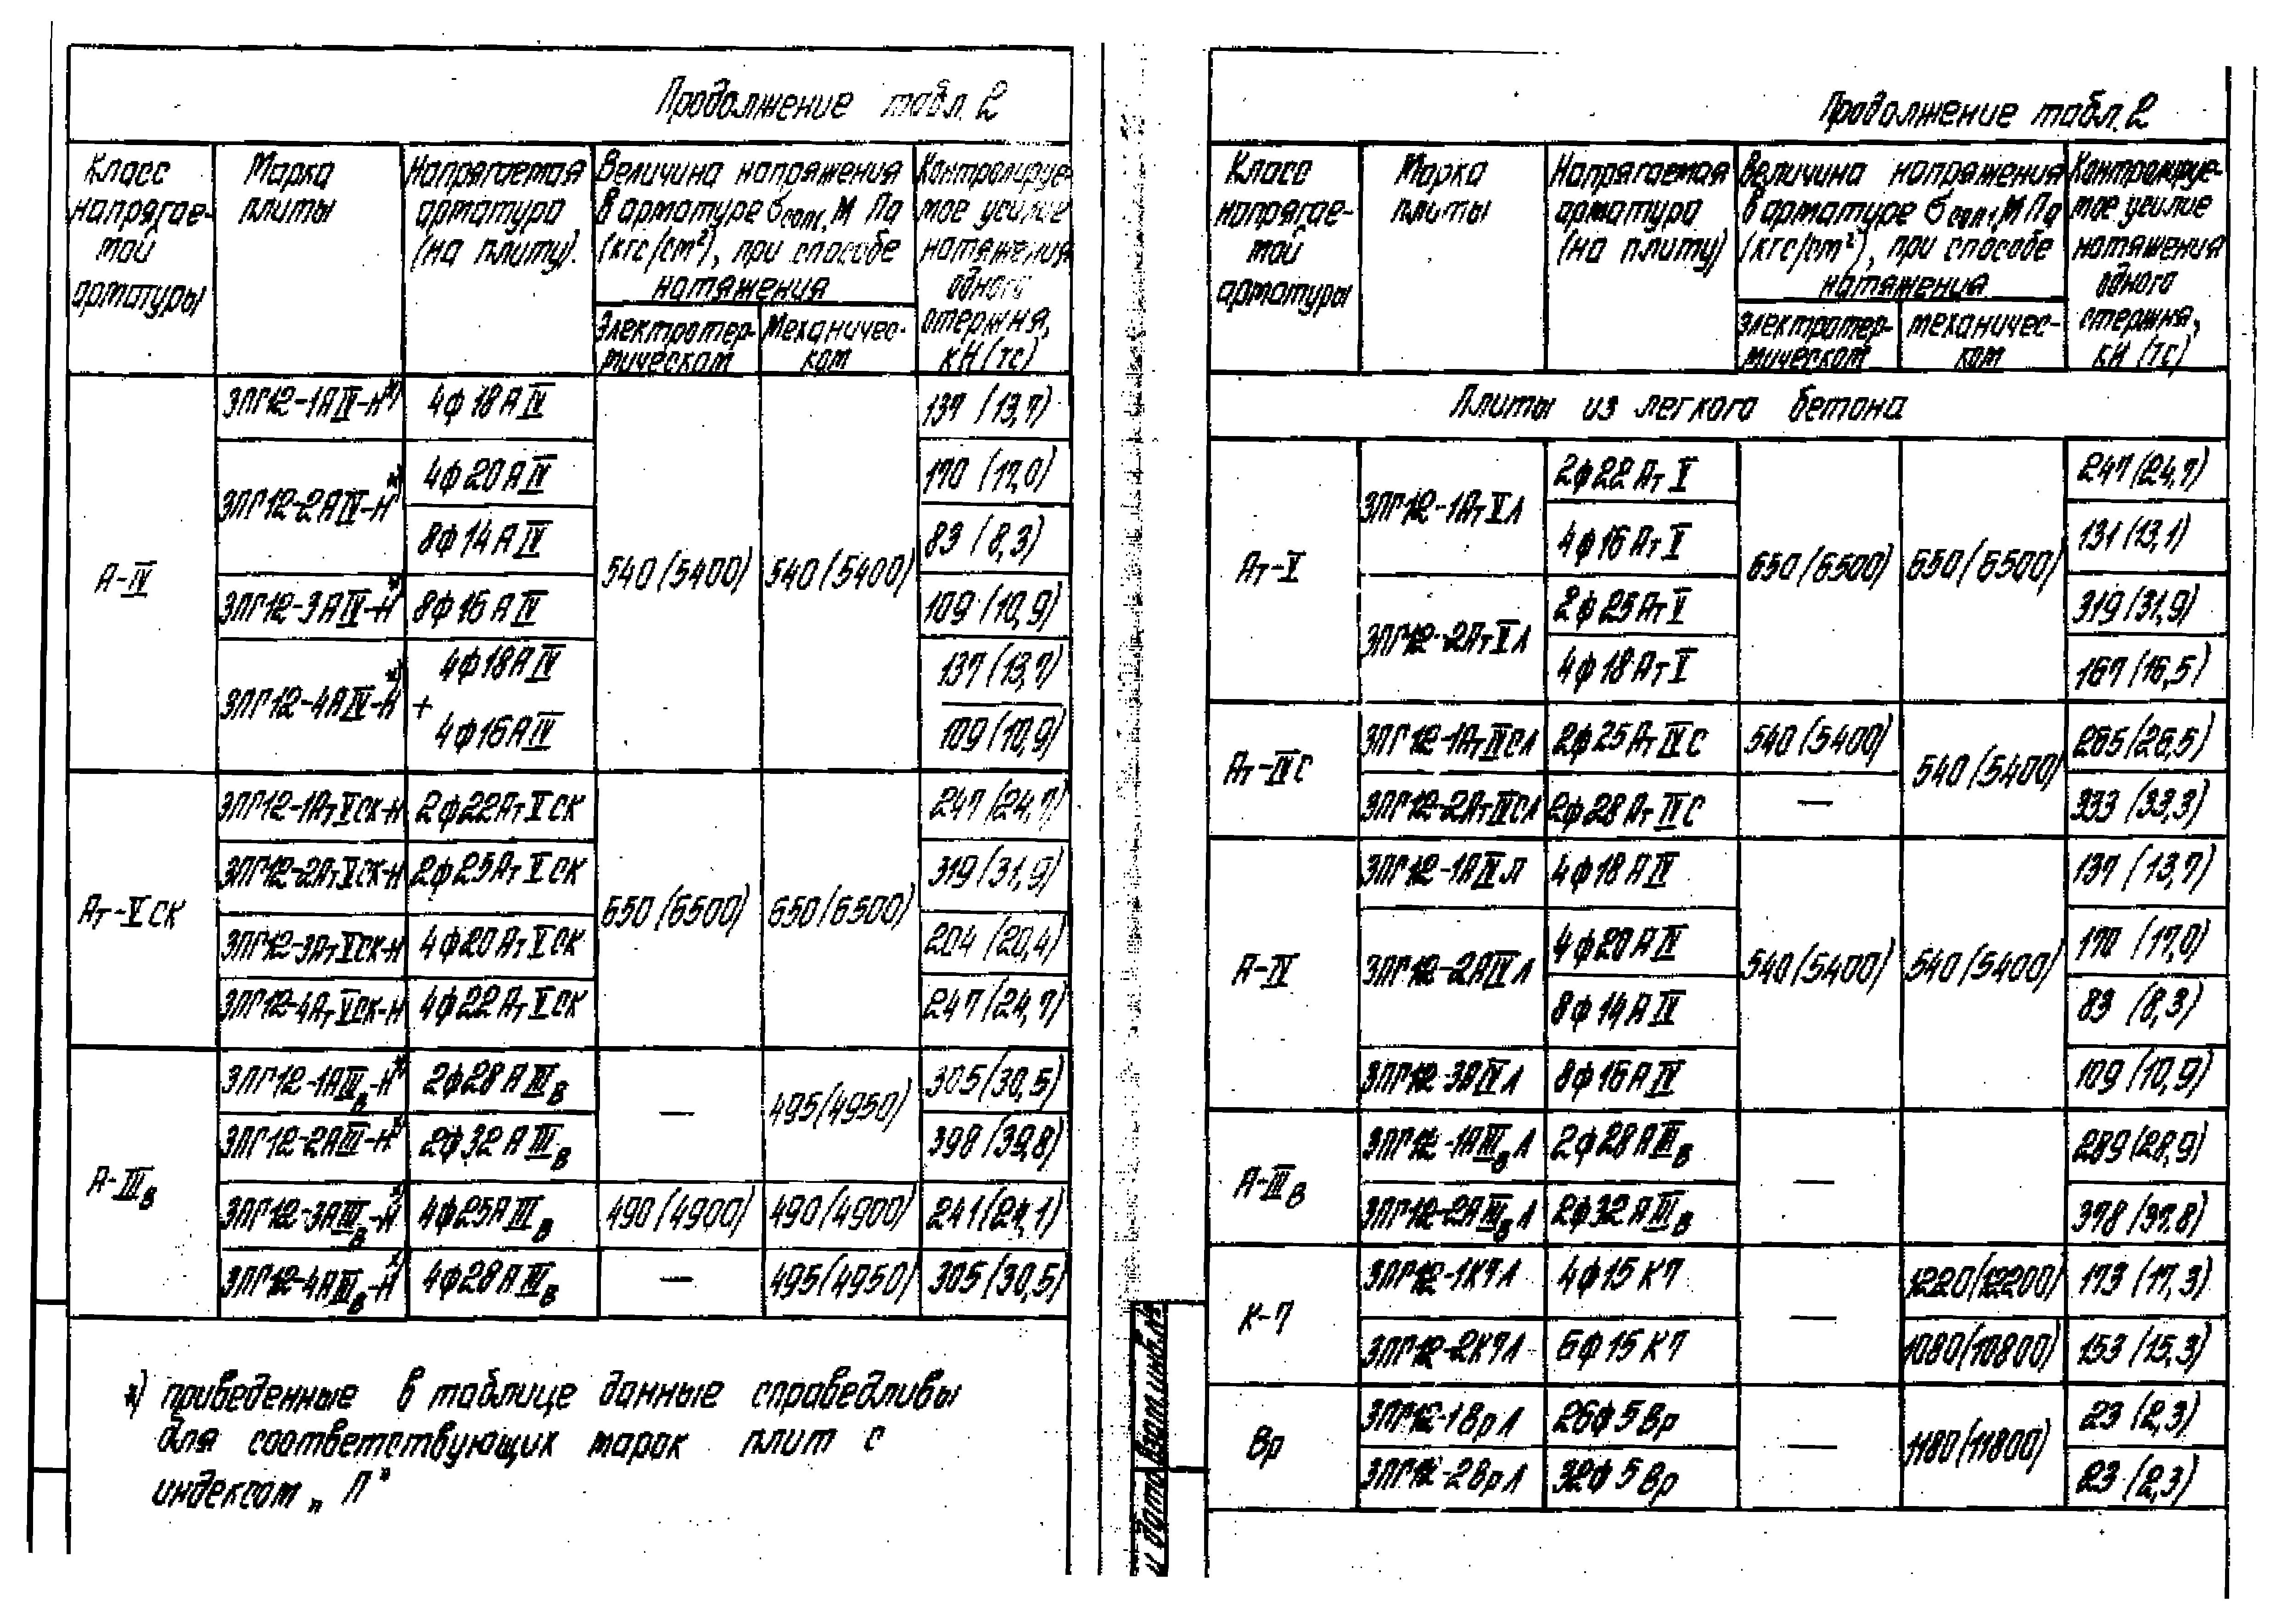 Продолжение табл. 2
Класс напрягае-мой арматуры | Марка плиты | Напрягаемая арматура (на плиту). | Величина напряжения в арматуре σcon, МПа (кгс/см²), при способе натяжения | Контролируе-мое усилие натяжения одного стержня, кН (тс)
Электротер-мическом | Механичес-ком
А-IV | 3ПГ12-1АIV-Н*) | 4ф18АIV | 540(5400) | 540(5400) | 137 (13,7)
3ПГ12-2АIV-Н*) | 4ф20АIV | 170 (17,0)
8ф14АIV | 83 (8,3)
3ПГ12-3АIV-Н*) | 8ф16АIV | 109 (10,9)
3ПГ12-4АIV-Н*) | 4ф18АIV + 4ф16АIV | 137 (13,7) 109 (10,9)
Ат-VСК | 3ПГ12-1АтVСК-Н | 2ф22АтVСК | 650(6500) | 650(6500) | 247 (24,7)
3ПГ12-2АтVСК-Н | 2ф25АтVСК | 319 (31,9)
3ПГ12-3АтVСК-Н | 4ф20АтVСК | 204 (20,4)
3ПГ12-4АтVСК-Н | 4ф22АтVСК | 247 (24,7)
А-IIIв | 3ПГ12-1АIIIв-Н*) | 2ф28АIIIв | — | 495(4950) | 305(30,5)
3ПГ12-2АIII-Н*) | 2ф32АIIIв | 398 (39,8)
3ПГ12-3АIIIв-Н*) | 4ф25АIIIв | 490(4900) | 490(4900) | 241(24,1)
3ПГ12-4АIIIв-Н*) | 4ф28АIIIв | — | 495(4950) | 305(30,5)
*) приведенные в таблице данные справедливы
для соответствующих марок плит с
индексом „П"
Продолжение табл. 2
Класс напрягае-мой арматуры | Марка плиты | Напрягаемая арматура (на плиту) | Величина напряжения в арматуре σcon, МПа (кгс/см²), при способе натяжения | Контролируе-мое усилие натяжения одного стержня, кН (тс)
Электротер-мическом | механичес-ком
Плиты из легкого бетона
Ат-V | 3ПГ12-1АтVЛ | 2ф22АтV | 650(6500) | 650(6500) | 247(24,7)
4ф16АтV | 131(13,1)
3ПГ12-2АтVЛ | 2ф25АтV | 319(31,9)
4ф18АтV | 167(16,5)
Ат-IVС | 3ПГ12-1АтIVСЛ | 2ф25АтIVС | 540(5400) | 540(5400) | 265(26,5)
3ПГ12-2АтIVСЛ | 2ф28АтIVС | — | 333 (33,3)
А-IV | 3ПГ12-1АIVЛ | 4ф18АIV | 540(5400) | 540(5400) | 137 (13,7)
3ПГ12-2АIVЛ | 4ф20АIV | 170 (17,0)
8ф14АIV | 83 (8,3)
3ПГ12-3АIVЛ | 8ф16АIV | 109 (10,9)
А-IIIв | 3ПГ12-1АIIIвЛ | 2ф28АIIIв | — | 289(28,9)
3ПГ12-2АIIIвЛ | 2ф32АIIIв | 378 (37,8)
К-7 | 3ПГ12-1К7Л | 4ф15К7 | — | 1220(12200) | 173 (17,3)
3ПГ12-2К7Л | 6ф15К7 | 1080(10800) | 153 (15,3)
Вр | 3ПГ12-1ВрЛ | 26ф5Вр | — | 1180(11800) | 23 (2,3)
3ПГ12-2ВрЛ | 32ф5Вр | 23 (2,3)
и дата
Взам.инв.№